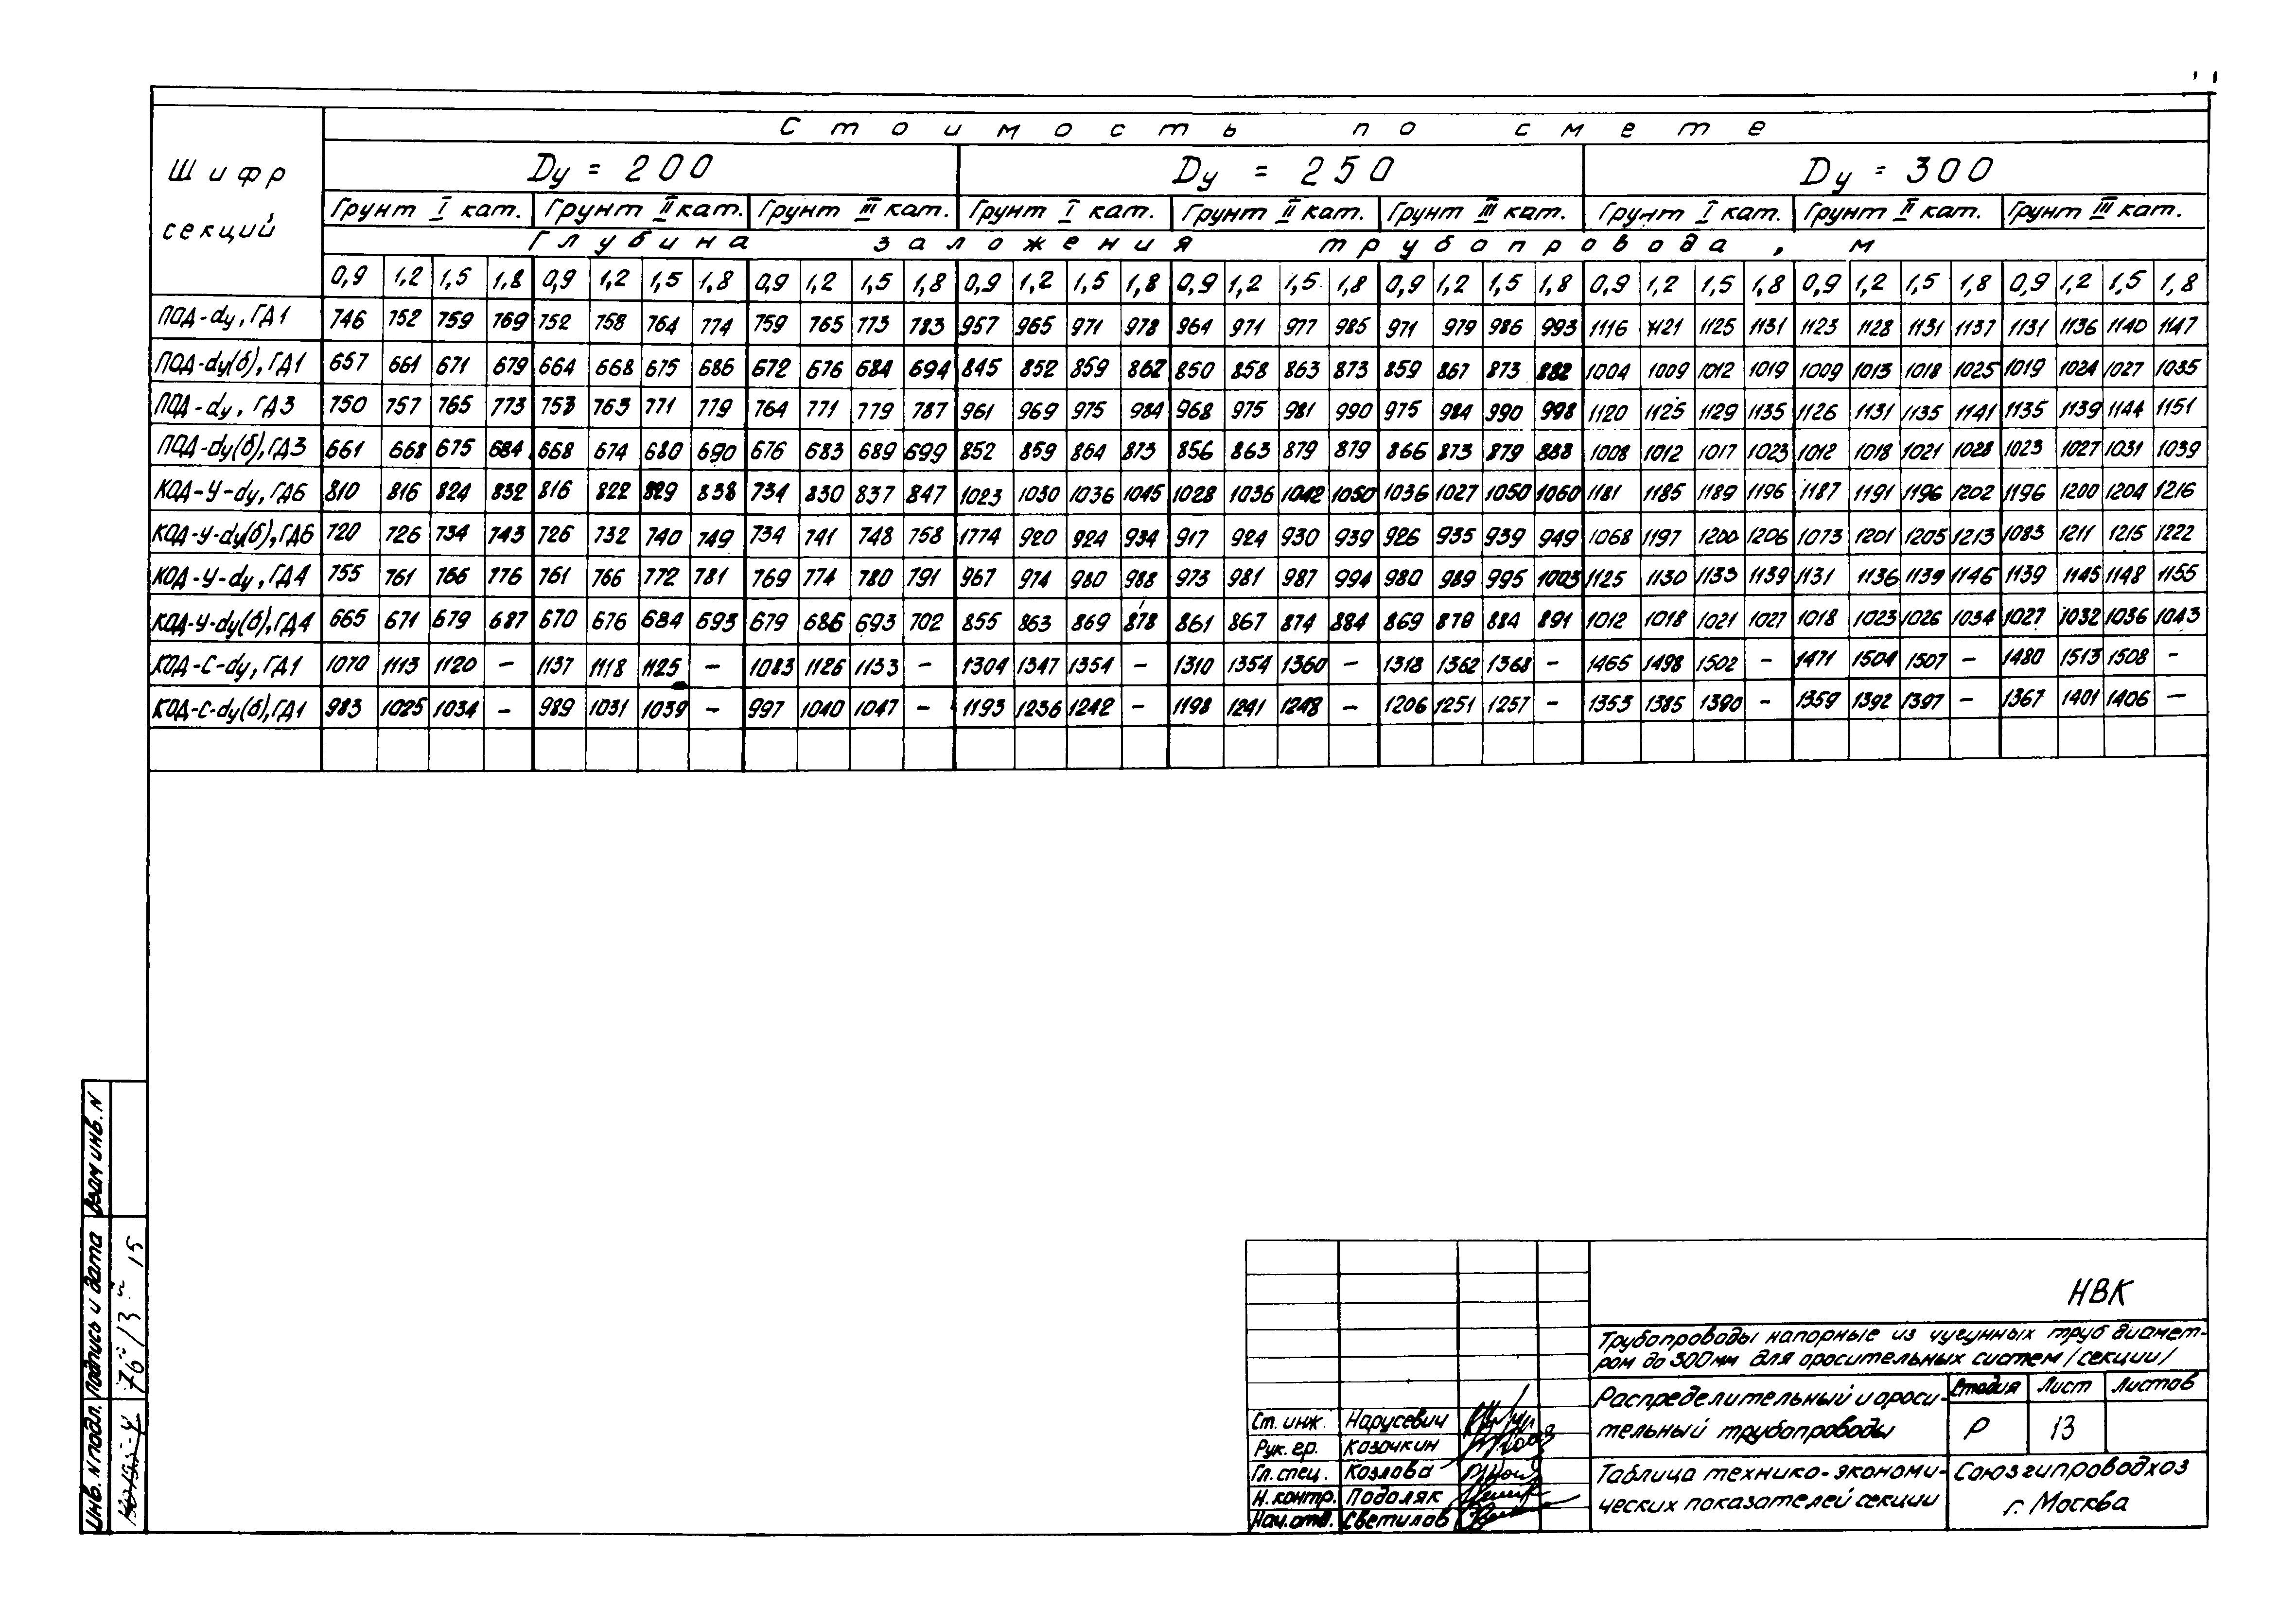 Стоимость по смете
Шифр секций
Dy = 200 Dy = 250 Dy = 300
Грунт I кат. Грунт II кат. Грунт III кат. Грунт I кат. Грунт II кат. Грунт III кат. Грунт I кат. Грунт II кат. Грунт III кат.
Глубина заложения трубопровода, м
0,9 1,2 1,5 1,8 0,9 1,2 1,5 1,8 0,9 1,2 1,5 1,8 0,9 1,2 1,5 1,8 0,9 1,2 1,5 1,8 0,9 1,2 1,5 1,8 0,9 1,2 1,5 1,8 0,9 1,2 1,5 1,8 0,9 1,2 1,5 1,8
ПОД-dy, ГД1 746 752 759 769 752 758 764 774 759 765 773 783 957 965 971 978 964 971 977 985 971 979 986 993 1116 1121 1125 1131 1123 1128 1131 1137 1131 1136 1140 1147
ПОД-dy(б), ГД1 657 661 671 679 664 668 675 686 672 676 684 694 845 852 859 867 850 858 863 873 859 867 873 882 1004 1009 1012 1019 1009 1013 1018 1025 1019 1024 1027 1035
ПОД-dy, ГД3 750 757 765 773 753 763 771 779 764 771 779 787 961 969 975 984 968 975 981 990 975 984 990 998 1120 1125 1129 1135 1126 1131 1135 1141 1135 1139 1144 1151
ПОД-dy(б), ГД3 661 668 675 684 668 674 680 690 676 683 689 699 852 859 864 873 856 863 879 879 866 873 879 888 1008 1012 1017 1023 1012 1018 1021 1028 1023 1027 1031 1039
КОД-У-dy, ГД6 810 816 824 832 816 822 829 838 734 830 837 847 1023 1030 1036 1045 1028 1036 1042 1050 1036 1027 1050 1060 1181 1185 1189 1196 1187 1191 1196 1202 1196 1200 1204 1216
КОД-У-dy(б), ГД6 720 726 734 743 726 732 740 749 734 741 748 758 1774 920 924 934 917 924 930 939 926 935 939 949 1068 1197 1200 1206 1073 1201 1205 1213 1083 1211 1215 1222
КОД-У-dy, ГД4 755 761 766 776 761 766 772 781 769 774 780 791 967 974 980 988 973 981 987 994 980 989 995 1003 1125 1130 1133 1139 1131 1136 1139 1146 1139 1145 1148 1155
КОД-У-dy(б), ГД4 665 671 679 687 670 676 684 693 679 686 693 702 855 863 869 878 861 867 874 884 869 878 884 891 1012 1018 1021 1027 1018 1023 1026 1034 1027 1032 1036 1043
КОД-С-dy, ГД1 1070 1113 1120 – 1137 1118 1125 – 1083 1126 1133 – 1304 1347 1354 – 1310 1354 1360 – 1318 1362 1368 – 1465 1498 1502 – 1471 1504 1507 – 1480 1513 1508 –
КОД-С-dy(б), ГД1 983 1025 1034 – 989 1031 1039 – 997 1040 1047 – 1193 1236 1242 – 1198 1241 1248 – 1206 1251 1257 – 1353 1385 1390 – 1359 1392 1397 – 1367 1401 1406 –
Инв. N подл. Подпись и дата Взам инв. N
НВК
Трубопроводы напорные из чугунных труб диамет-
ром до 300мм для оросительных систем /секции/
Распределительный и ороси-
тельный трубопроводы
Стадия Лист Листов
Р 13
Ст. инж. Нарусевич
Рук. гр. Козочкин
Гл. спец. Козлова
Н. контр. Подоляк
Нач. отд. Светилов
Таблица технико-экономи-
ческих показателей секции
Союзгипроводхоз
г. Москва